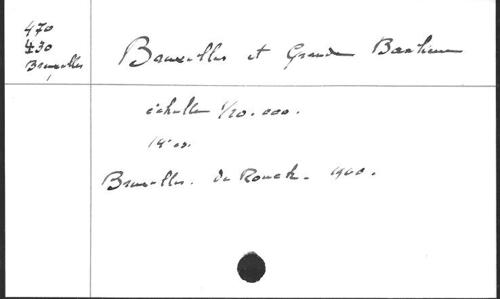 470
430
Bruxelles
Bruxelles et Grande Banlieue
échelle 1/20.000.
Bruxelles. De Rouck. 1900.